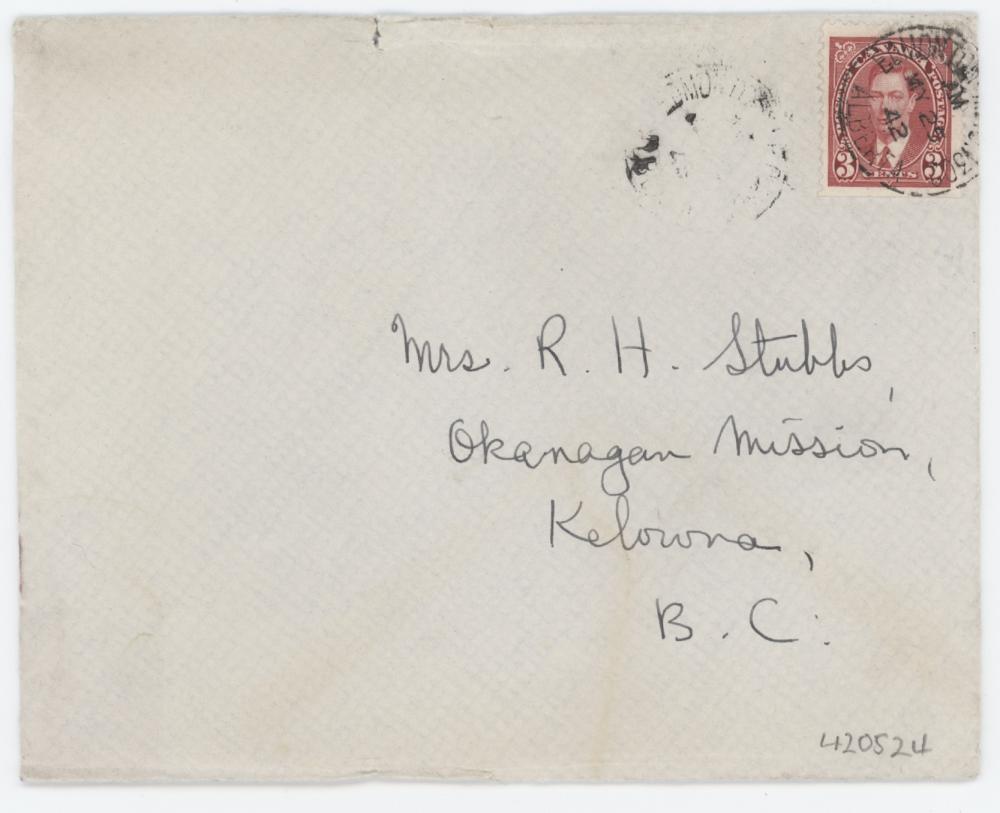 CANADA POSTAGE
3 CENTS 3
EDMONTON
ALBERTA
MY 25
42
Mrs. R. H. Stubbs,
Okanagan Mission,
Kelowna,
B. C.
420524